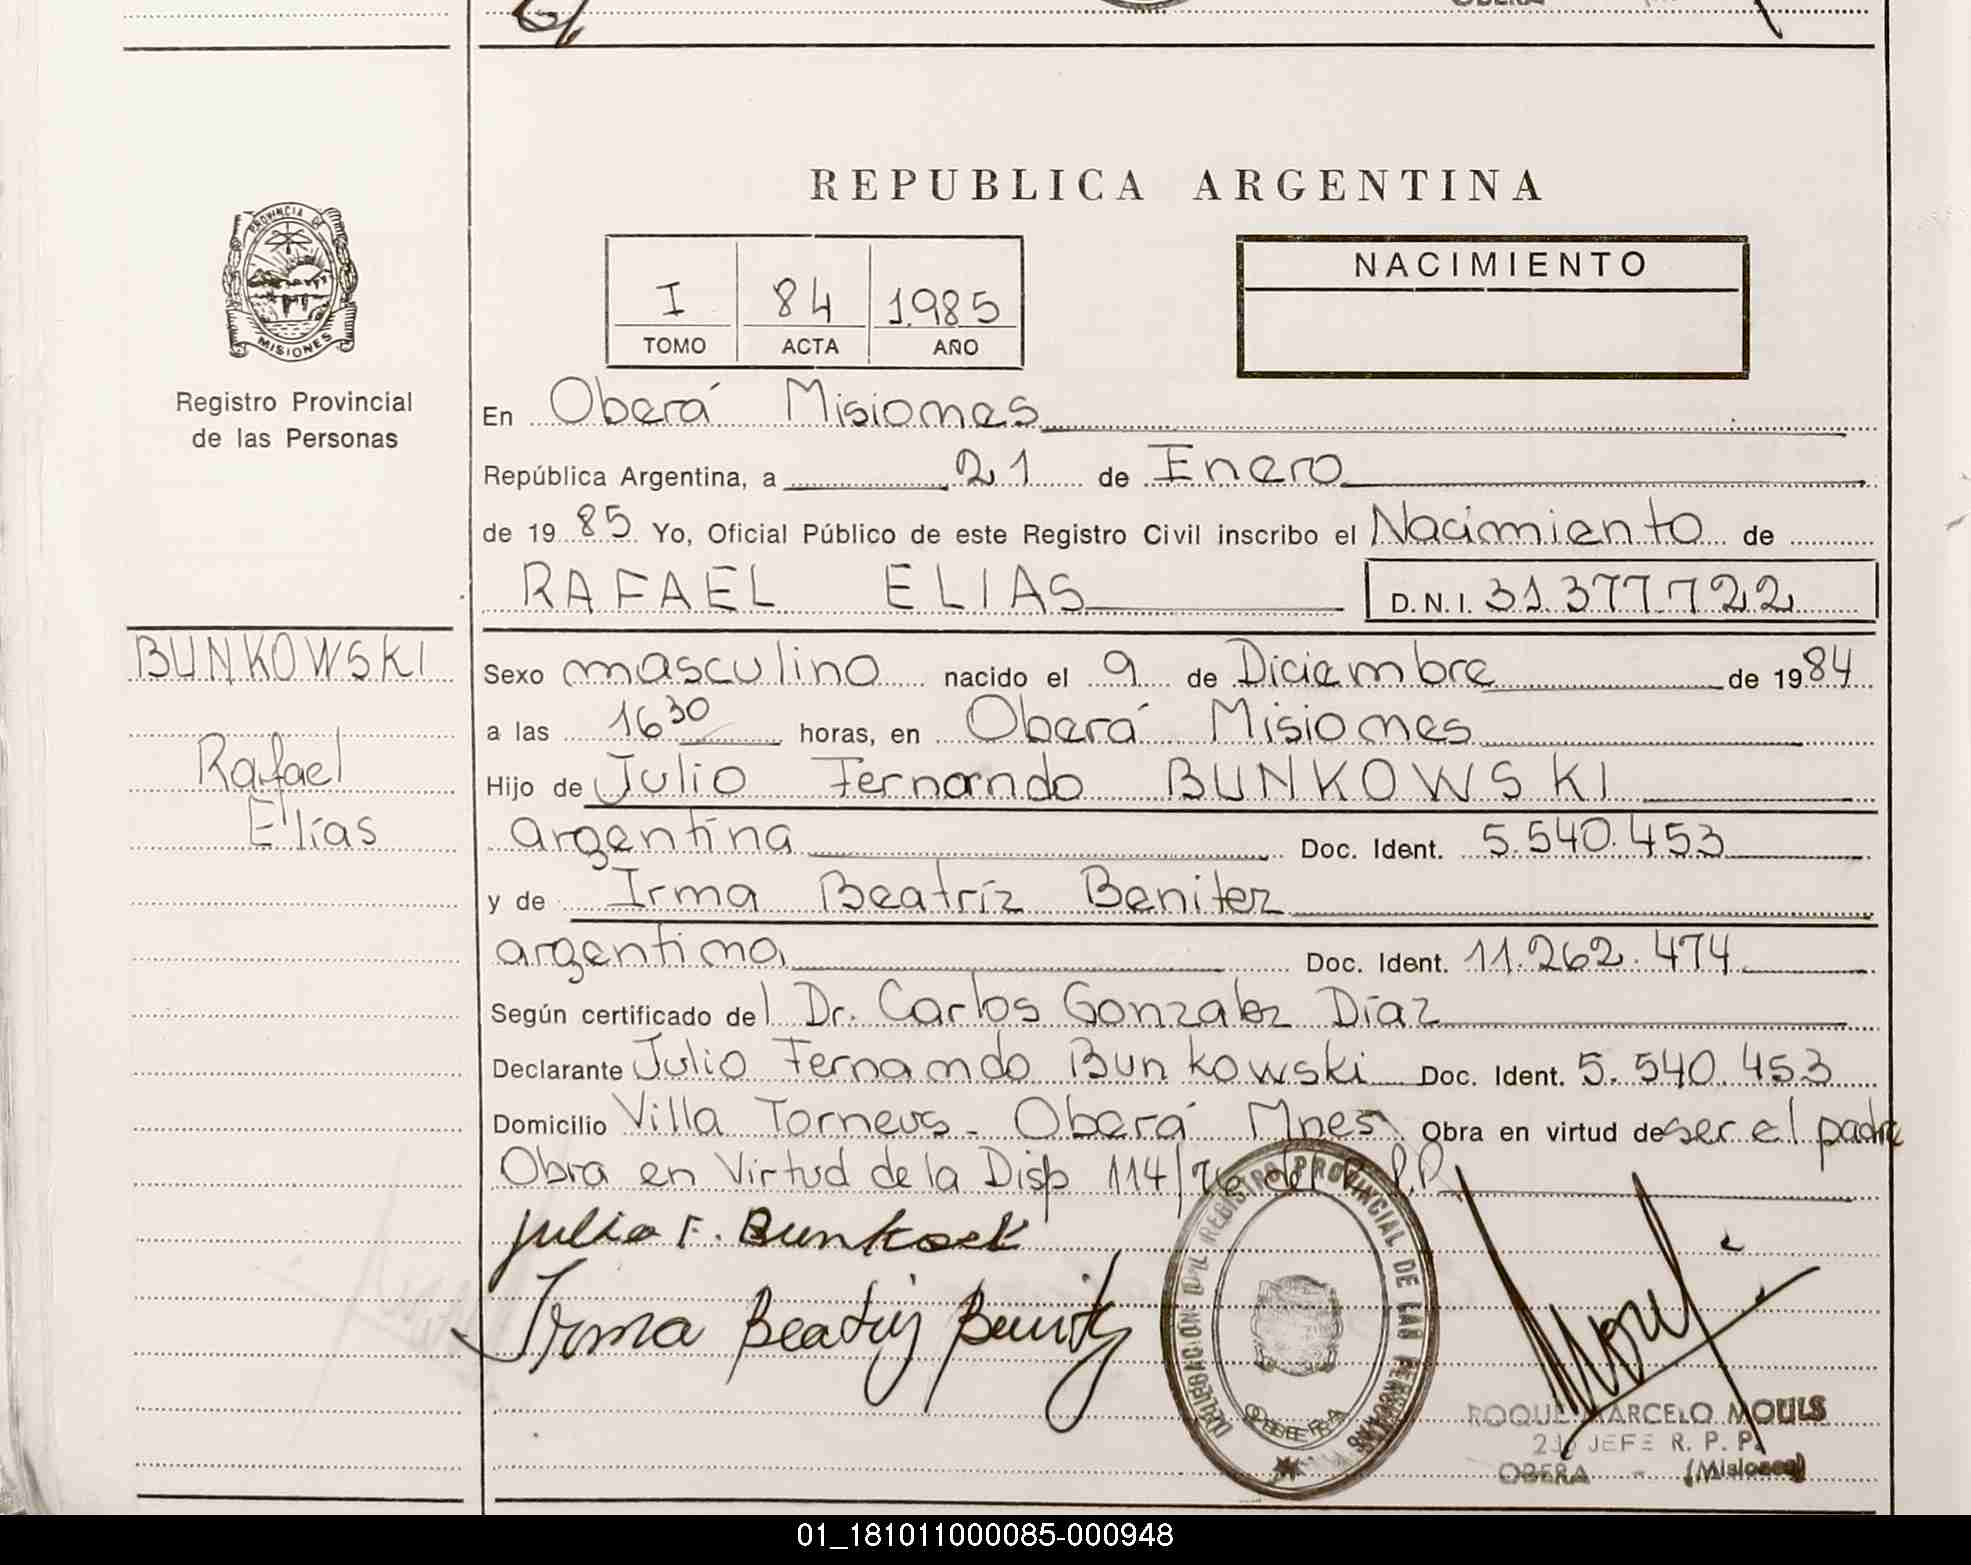 OBERA
REPUBLICA ARGENTINA
PROVINCIA DE
MISIONES
Registro Provincial
de las Personas
I 84 1.985
TOMO ACTA AÑO
NACIMIENTO
En Oberá Misiones
República Argentina, a 21 de Enero
de 19 85 Yo, Oficial Público de este Registro Civil inscribo el Nacimiento de
RAFAEL ELIAS D.N.I. 31.377.722
BUNKOWSKI
Rafael
Elías
Sexo masculino nacido el 9 de Diciembre de 1984
a las 16 30 horas, en Oberá Misiones
Hijo de Julio Fernando BUNKOWSKI
argentina Doc. Ident. 5.540.453
y de Irma Beatríz Benitez
argentina Doc. Ident. 11.262.474
Según certificado del Dr. Carlos Gonzalez Díaz
Declarante Julio Fernando Bunkowski Doc. Ident. 5.540.453
Domicilio Villa Torneus - Oberá Mnes Obra en virtud de ser el padre
Obra en Virtud de la Disp 114/76 del R.P.P
Julio F.
Irma Beatriz Benitez
REGISTRO PROVINCIAL DE LAS PERSONAS
OBERA
ROQUE MARCELO MOULS
2do JEFE R. P. P.
OBERA - (Misiones)
01_181011000085-000948